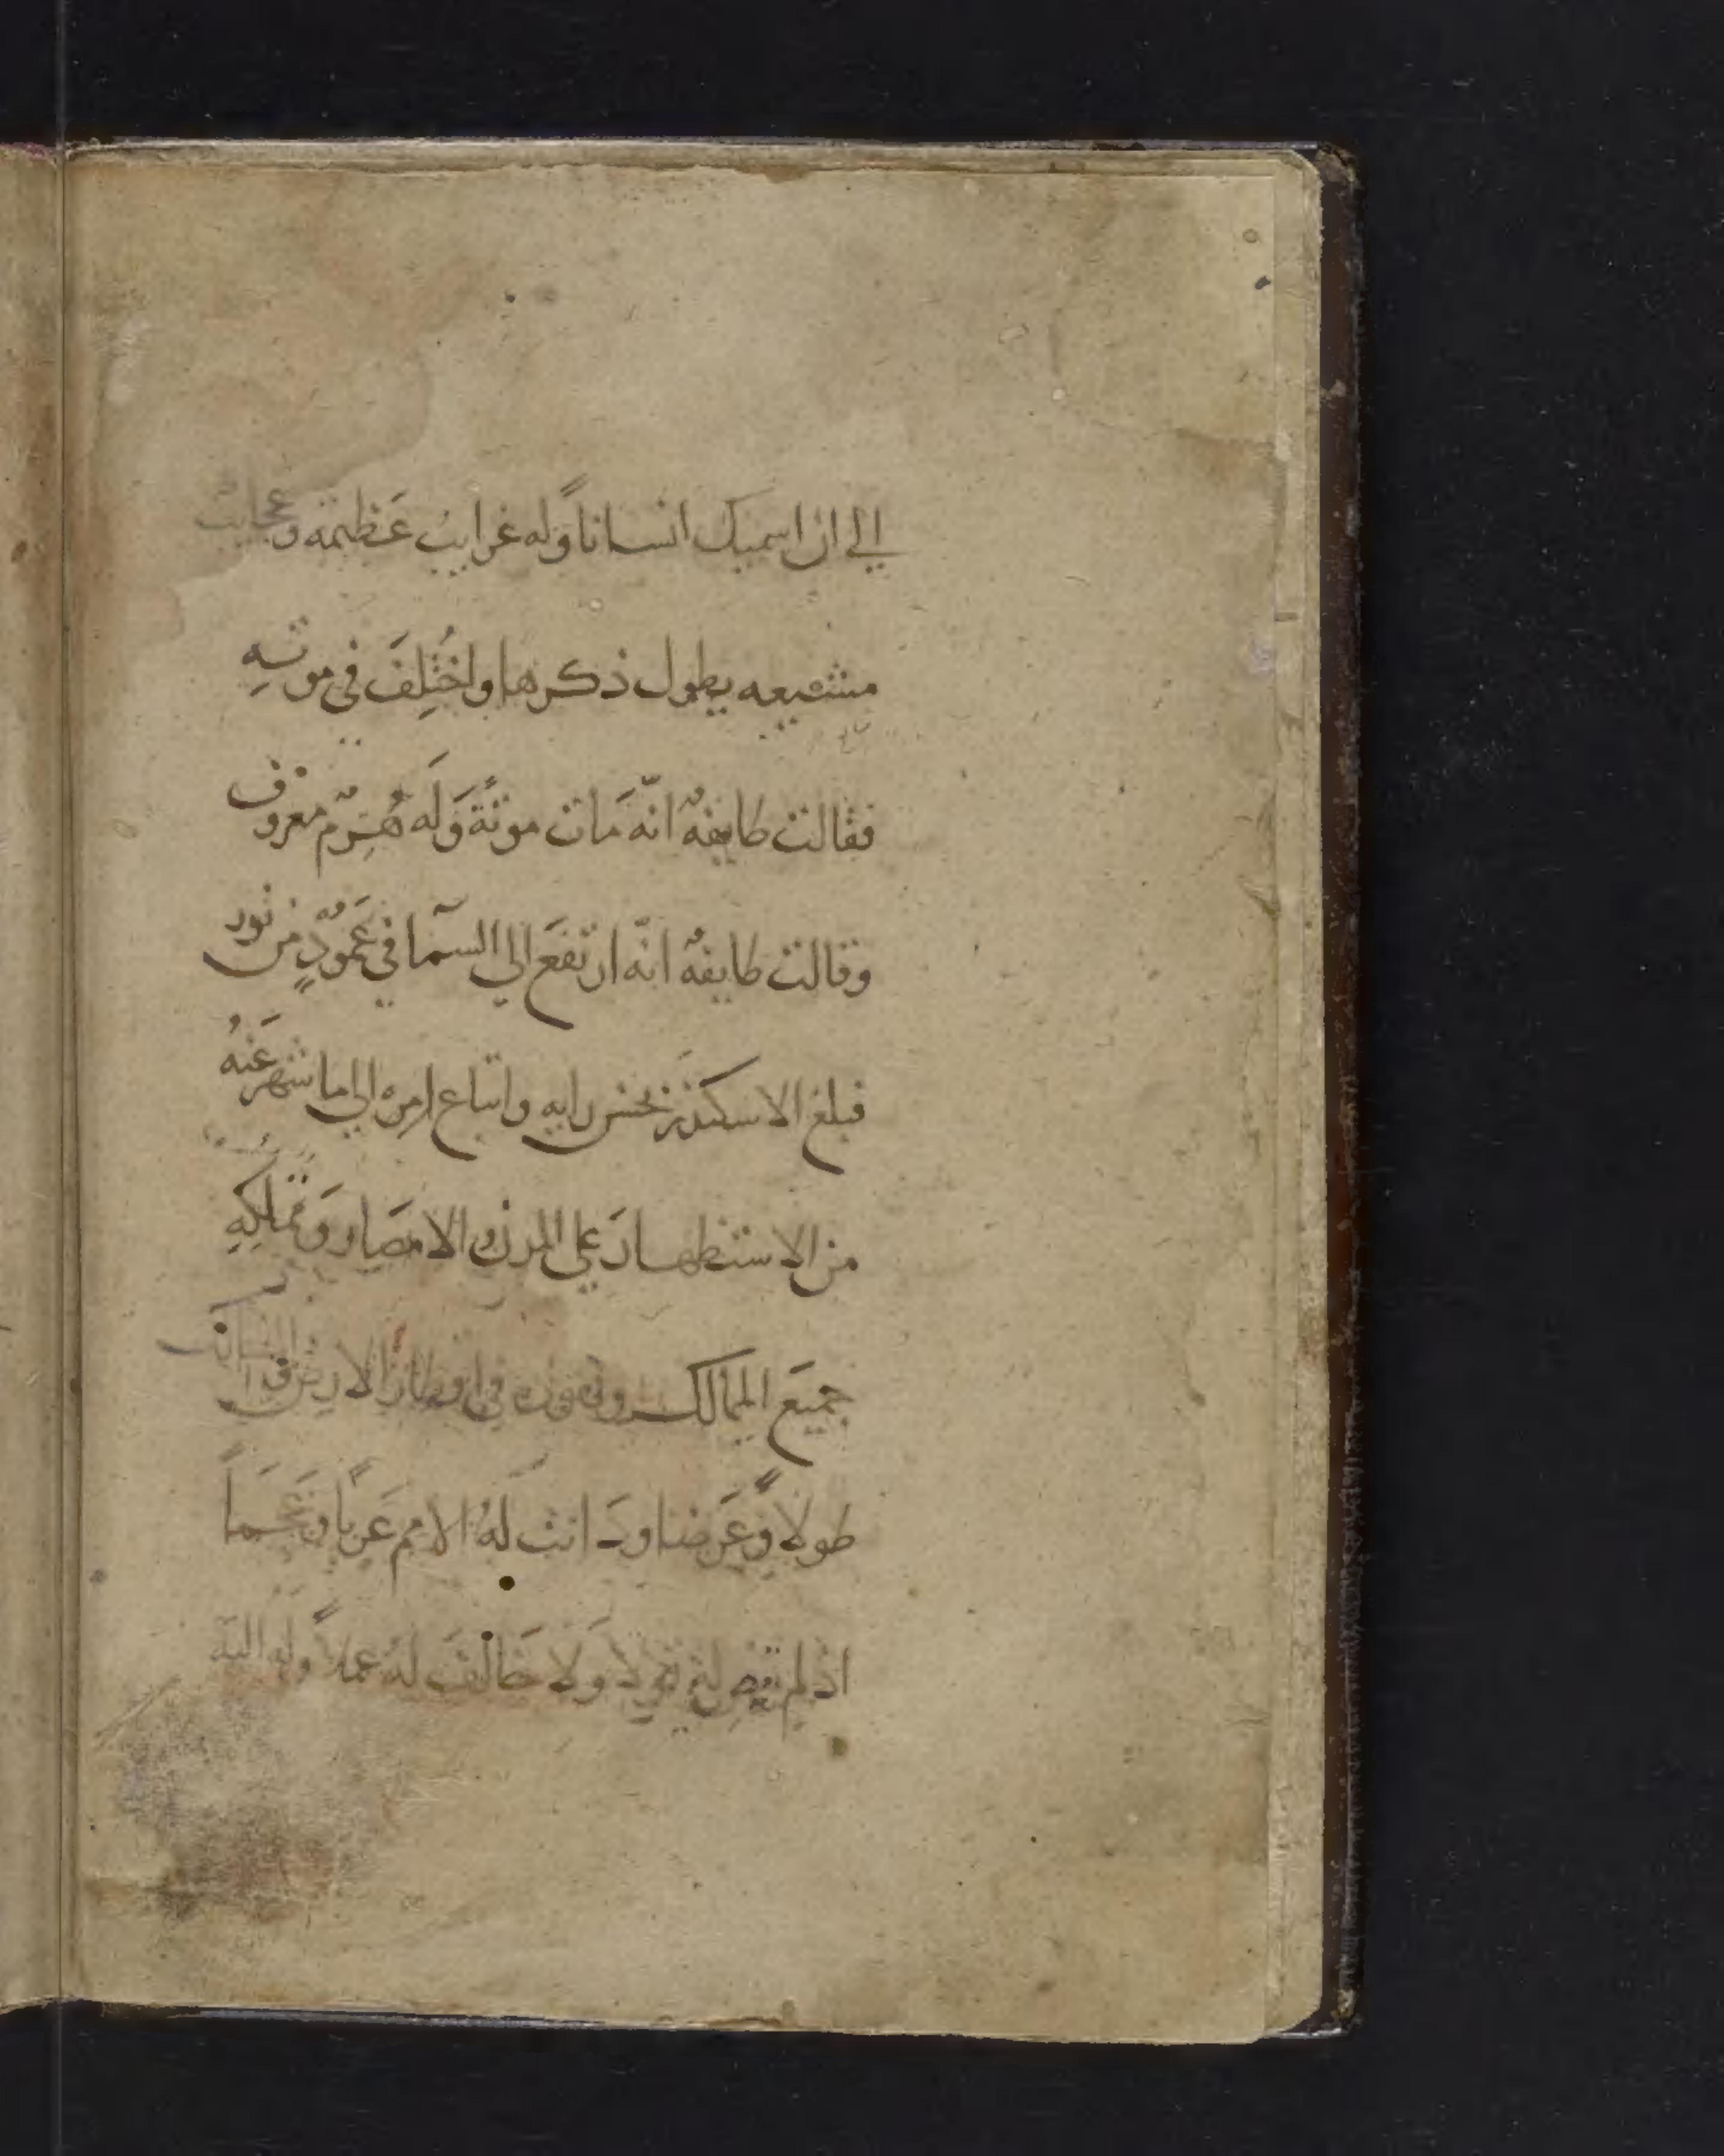 الي ان اسميك انساناً وله غرايبُ عَظيمه وعجايب
مشيعه يطول ذكرها واختُلِفَ في موتهِ
فقالت طايفهٌ انّه مَات موتةً وَله هُرمٌ معروف
وقالت طايفهٌ انّه ارتفعَ الي السمآ في عَمُودٍ من نور
فبلغ الاسكندر بحسن رايه واتباع امره الي ما شهر عَنهُ
من الاستظهار عَلي المدن والامصَار وَتملكِهِ
جميعَ الممالك في اقطار الارض
طولاً وعَرضا ودانت لهُ الامم عَرباً وعَجَماً
اذ لم ولا خالفَ له عملاً